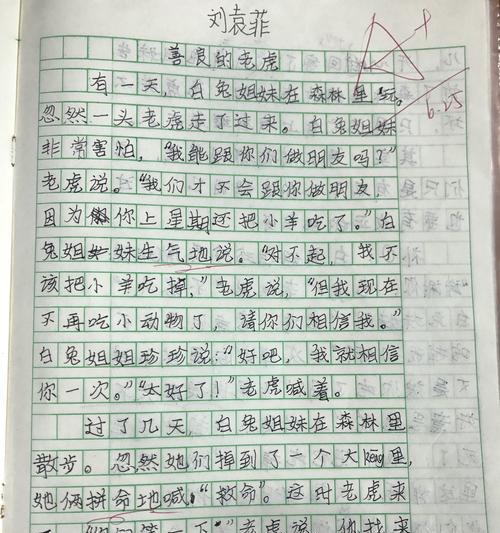 刘袁菲
善良的老虎
有一天，白兔姐妹在森林里玩。
忽然一头老虎走了过来。白兔姐妹
非常害怕，“我能跟你们做朋友吗？”
老虎说。“我们才不会跟你做朋友，
因为你上星期还把小羊吃了。”白
兔姐妹生气地说。“对不起，我不
该把小羊吃掉，”老虎说，“但我现在
不再吃小动物了，请你们相信我。”
白兔姐姐珍珍说：“好吧，我就相信
你一次。”“太好了！”老虎喊着。
过了几天，白兔姐妹在森林里
散步。忽然她们掉到了一个大keng里，
她俩拼命地喊：“救命”。这时老虎来
等一下”老虎说 你找来
A+
6.25